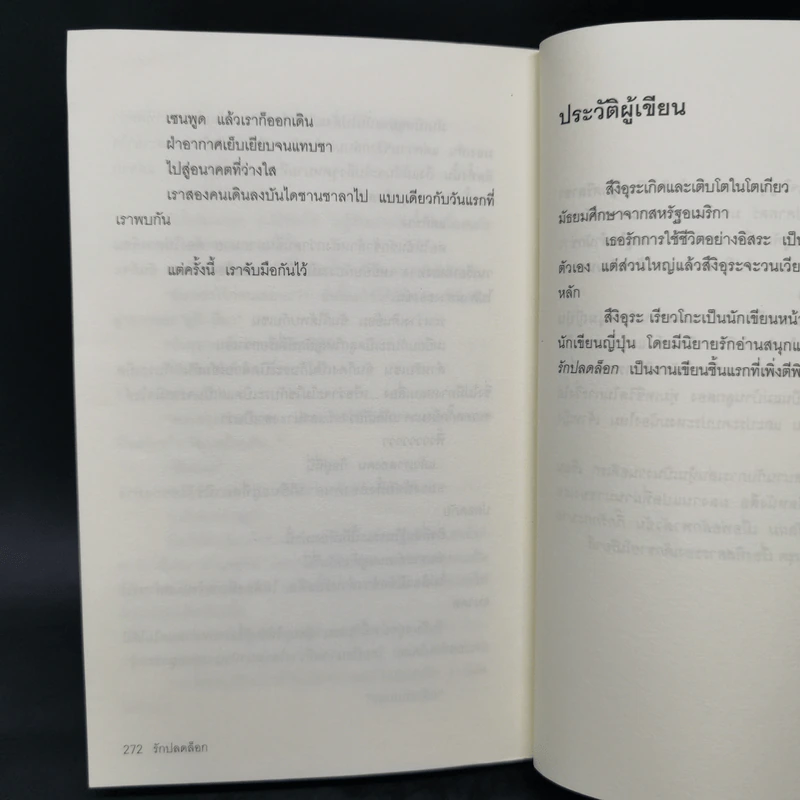 เซนพูด แล้วเราก็ออกเดิน
ฝ่าอากาศเย็บเยียบจนแทบชา
ไปสู่อนาคตที่ว่างใส
เราสองคนเดินลงบันไดชานชาลาไป แบบเดียวกับวันแรกที่
เราพบกัน
แต่ครั้งนี้ เราจับมือกันไว้
272 รักปลดล็อก
ประวัติผู้เขียน
สึงิอุระเกิดและเติบโตในโตเกียว
มัธยมศึกษาจากสหรัฐอเมริกา
เธอรักการใช้ชีวิตอย่างอิสระ
ตัวเอง แต่ส่วนใหญ่แล้วสึงิอุระจะวนเวีย
หลัก
สึงิอุระ เรียวโกะเป็นนักเขียนหน้า
นักเขียนญี่ปุ่น โดยมีนิยายรักอ่านสนุกแ
รักปลดล็อก เป็นงานเขียนชิ้นแรกที่เพิ่งตีพิ